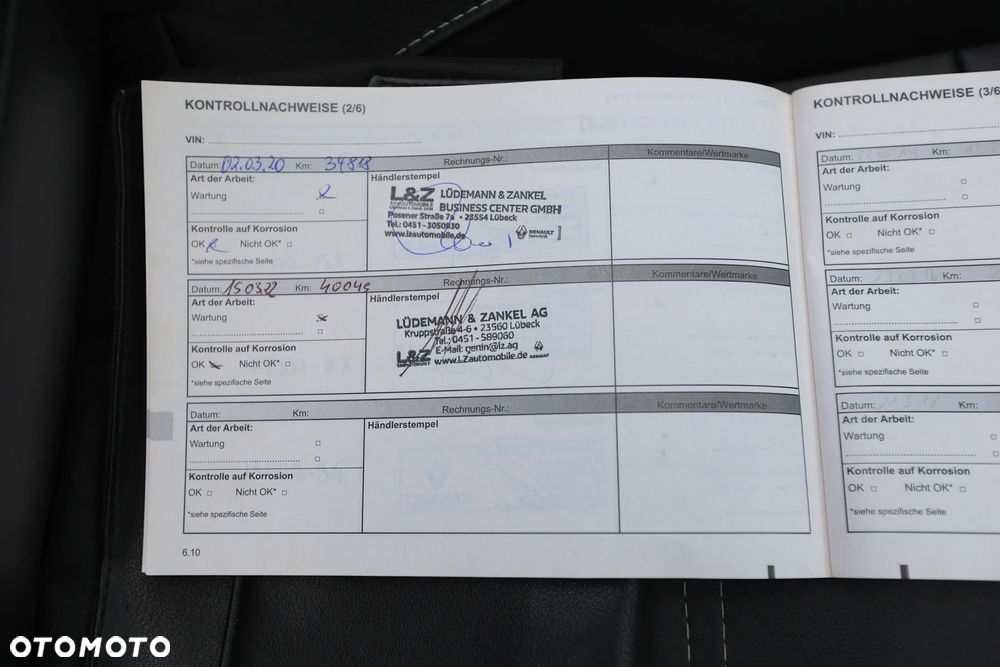 KONTROLLNACHWEISE (2/6)
VIN:
Datum: 02.03.20 Km: 34818 Rechnungs-Nr.: Kommentare/Wertmarke
Art der Arbeit:
Wartung
Kontrolle auf Korrosion
OK Nicht OK*
*siehe spezifische Seite
Händlerstempel
L&Z LÜDEMANN & ZANKEL
BUSINESS CENTER GMBH
Posener Straße 7a • 23554 Lübeck
Tel.: 0451 - 3050930
www.lzautomobile.de
RENAULT
Datum: 150322 Km: 40045 Rechnungs-Nr.: Kommentare/Wertmarke
Art der Arbeit:
Wartung
Kontrolle auf Korrosion
OK Nicht OK*
*siehe spezifische Seite
Händlerstempel
LÜDEMANN & ZANKEL AG
Kruppstraße 4-6 • 23560 Lübeck
Tel.: 0451 - 589060
E-Mail: genin@lz.ag
L&Z www.LZautomobile.de
Datum: Km: Rechnungs-Nr.: Kommentare/Wertmarke
Art der Arbeit:
Wartung
Kontrolle auf Korrosion
OK Nicht OK*
*siehe spezifische Seite
Händlerstempel
6.10
KONTROLLNACHWEISE (3/6
VIN:
Datum: Km:
Art der Arbeit:
Wartung
Kontrolle auf Korrosion
OK Nicht OK*
*siehe spezifische Seite
Datum: Km:
Art der Arbeit:
Wartung
Kontrolle auf Korrosion
OK Nicht OK*
*siehe spezifische Seite
Datum: Km:
Art der Arbeit:
Wartung
Kontrolle auf Korrosion
OK Nicht OK*
*siehe spezifische Seite
OTOMOTO